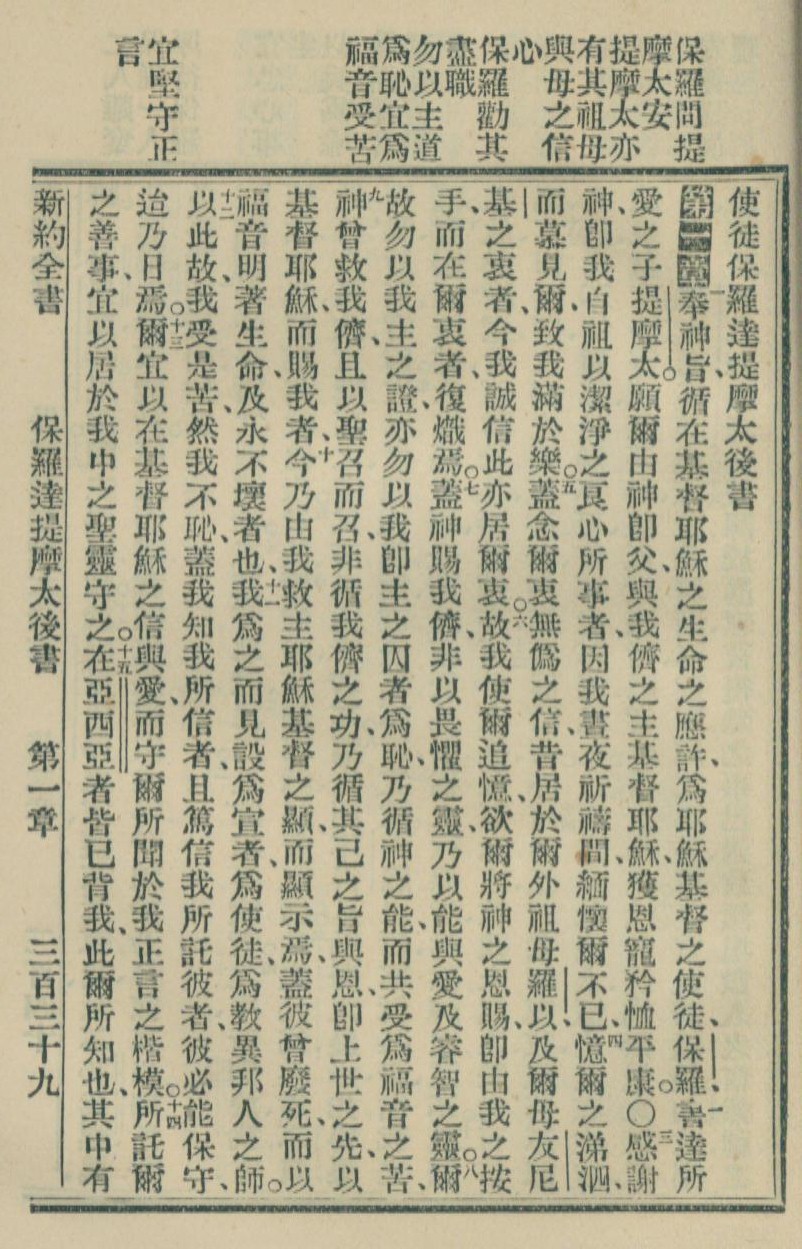 保羅問提
摩太安
提摩太亦
有其祖母
與母之信
心
保羅勸其
盡職
勿以主道
爲恥宜爲
福音受苦
宜堅守正
言
使徒保羅達提摩太後書
第一章一奉神旨、循在基督耶穌之生命之應許、爲耶穌基督之使徒、保羅、二書達所
愛之子提摩太、願爾由神卽父、與我儕之主基督耶穌、獲恩寵矜恤平康〇三感謝
神、卽我自祖以潔淨之良心所事者、因我晝夜祈禱間、緬懷爾不已、四憶爾之涕泗、
而慕見爾、致我滿於樂、五蓋念爾衷無僞之信、昔居於爾外祖母羅以、及爾母友尼
基之衷者、今我誠信此亦居爾衷、六故我使爾追憶、欲爾將神之恩賜、卽由我之按
手、而在爾衷者、復熾焉、七蓋神賜我儕、非以畏懼之靈、乃以能與愛及睿智之靈、八爾
故勿以我主之證、亦勿以我卽主之囚者爲恥、乃循神之能、而共受爲福音之苦、
九神曾救我儕、且以聖召而召、非循我儕之功、乃循其己之旨與恩、卽上世之先、以
基督耶穌、而賜我者、十今乃由我救主耶穌基督之顯、而顯示焉、蓋彼曾廢死、而以
福音明著生命、及永不壞者也、十一我爲之而見設爲宣者、爲使徒、爲教異邦人之師。
十二以此故、我受是苦、然我不恥、蓋我知我所信者、且篤信我所託彼者、彼必能保守、
迨乃日焉、十三爾宜以在基督耶穌之信與愛、而守爾所聞於我正言之楷模、十四所託爾
之善事、宜以居於我中之聖靈守之、十五在亞西亞者皆已背我、此爾所知也、其中有
新約全書　保羅達提摩太後書　第一章　三百三十九